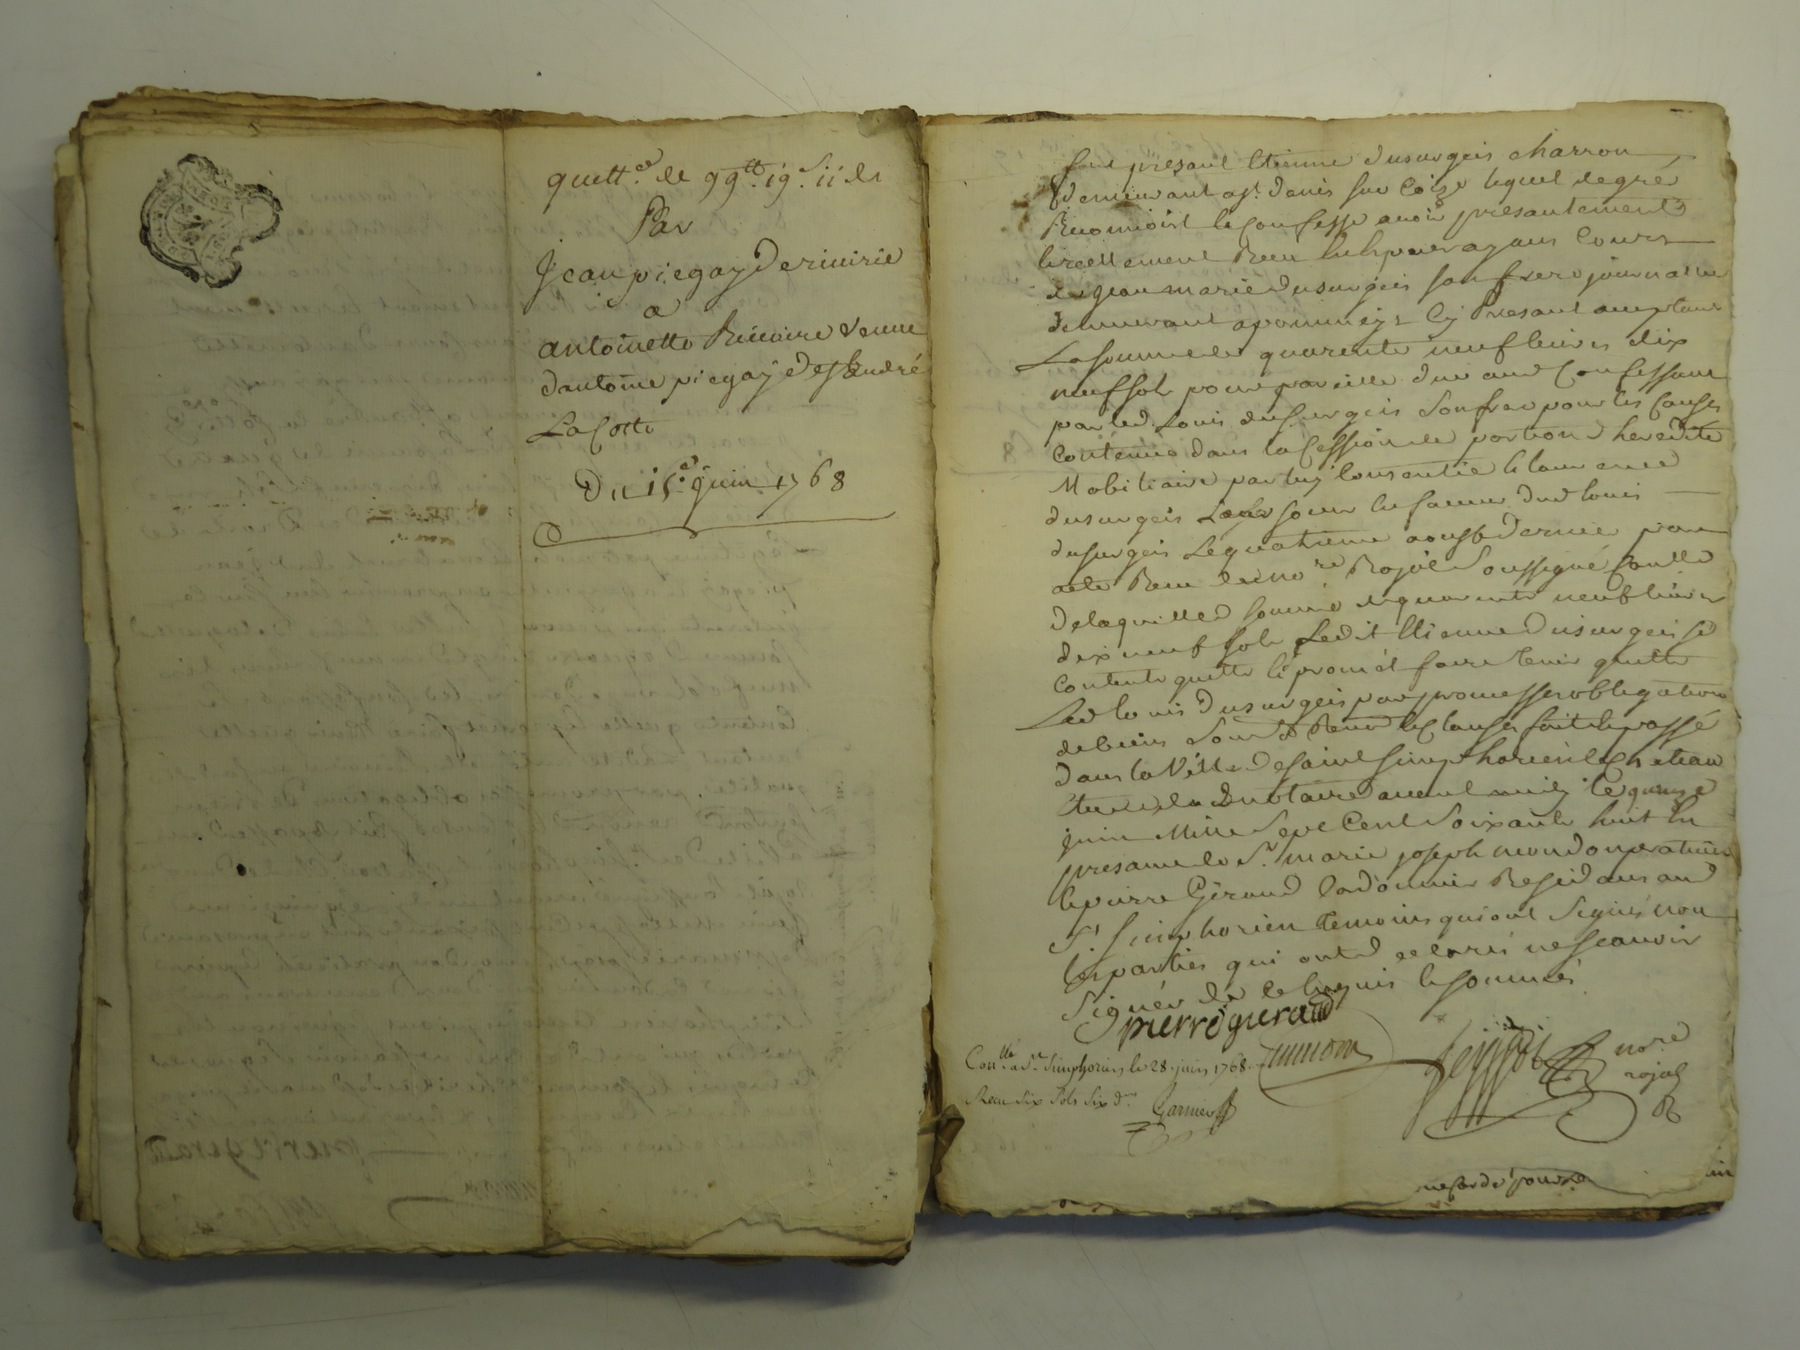 quitt.ce de 99tt 19s 11ds
Par
Jean piegay De riviirie
a
antoinette Rivioire veuve
d'antoine piegaÿ de St andré
La Coste
Du 15e juin 1768
fut presant Etienne dusurgeis charron
demeurant a st denis sur Coize lequel de gré
Reconnoist et confesse avoir presantement
et reellement Receu en especes ayans Cours
de jean marie dusurgeis son frere journallier
demeurant a pommeys Cy Presant acceptant
La somme de quarente neuf livres dix
neuf sols pour pareille due aud Confessant
par led. Louis dusurgeis son frere pour les Causes
Contenues dans la Cession de portion d heredité
Mobiliaire par luy Consentie et laurence
dusurgeis Leur soeur en faveur dud louis
dusurgeis Le quatrieme aoust Dernier par
acte Receu du no.re Royal soussigné
De laquelle somme de quarente neuf livres
dix neuf sols Ledit Etienne dusurgeis se
Contente quitte et promet faire tenir quitte
Led louis dusurgeis par promesses obligations
de biens soum. Renon. et Clauses fait et passé
dans la Ville de saint simphorien le Chateau
Etude du d. notaire avant midy le quinze
juin Mille Sept Cent Soixante huit En
presance de sr marie joseph mondon praticien
et pierre Géraud Cordonnier Residans aud
St Simphorien temoins qui ont Signés non
les parties qui ont declarés ne scavoir
Signer de ce Enquis et sommés
pierre gieraud
Con.lle a St. Simphorien le 28. juin 1768.
Receu Six Sols Six d.rs Garnier
no.re
royal